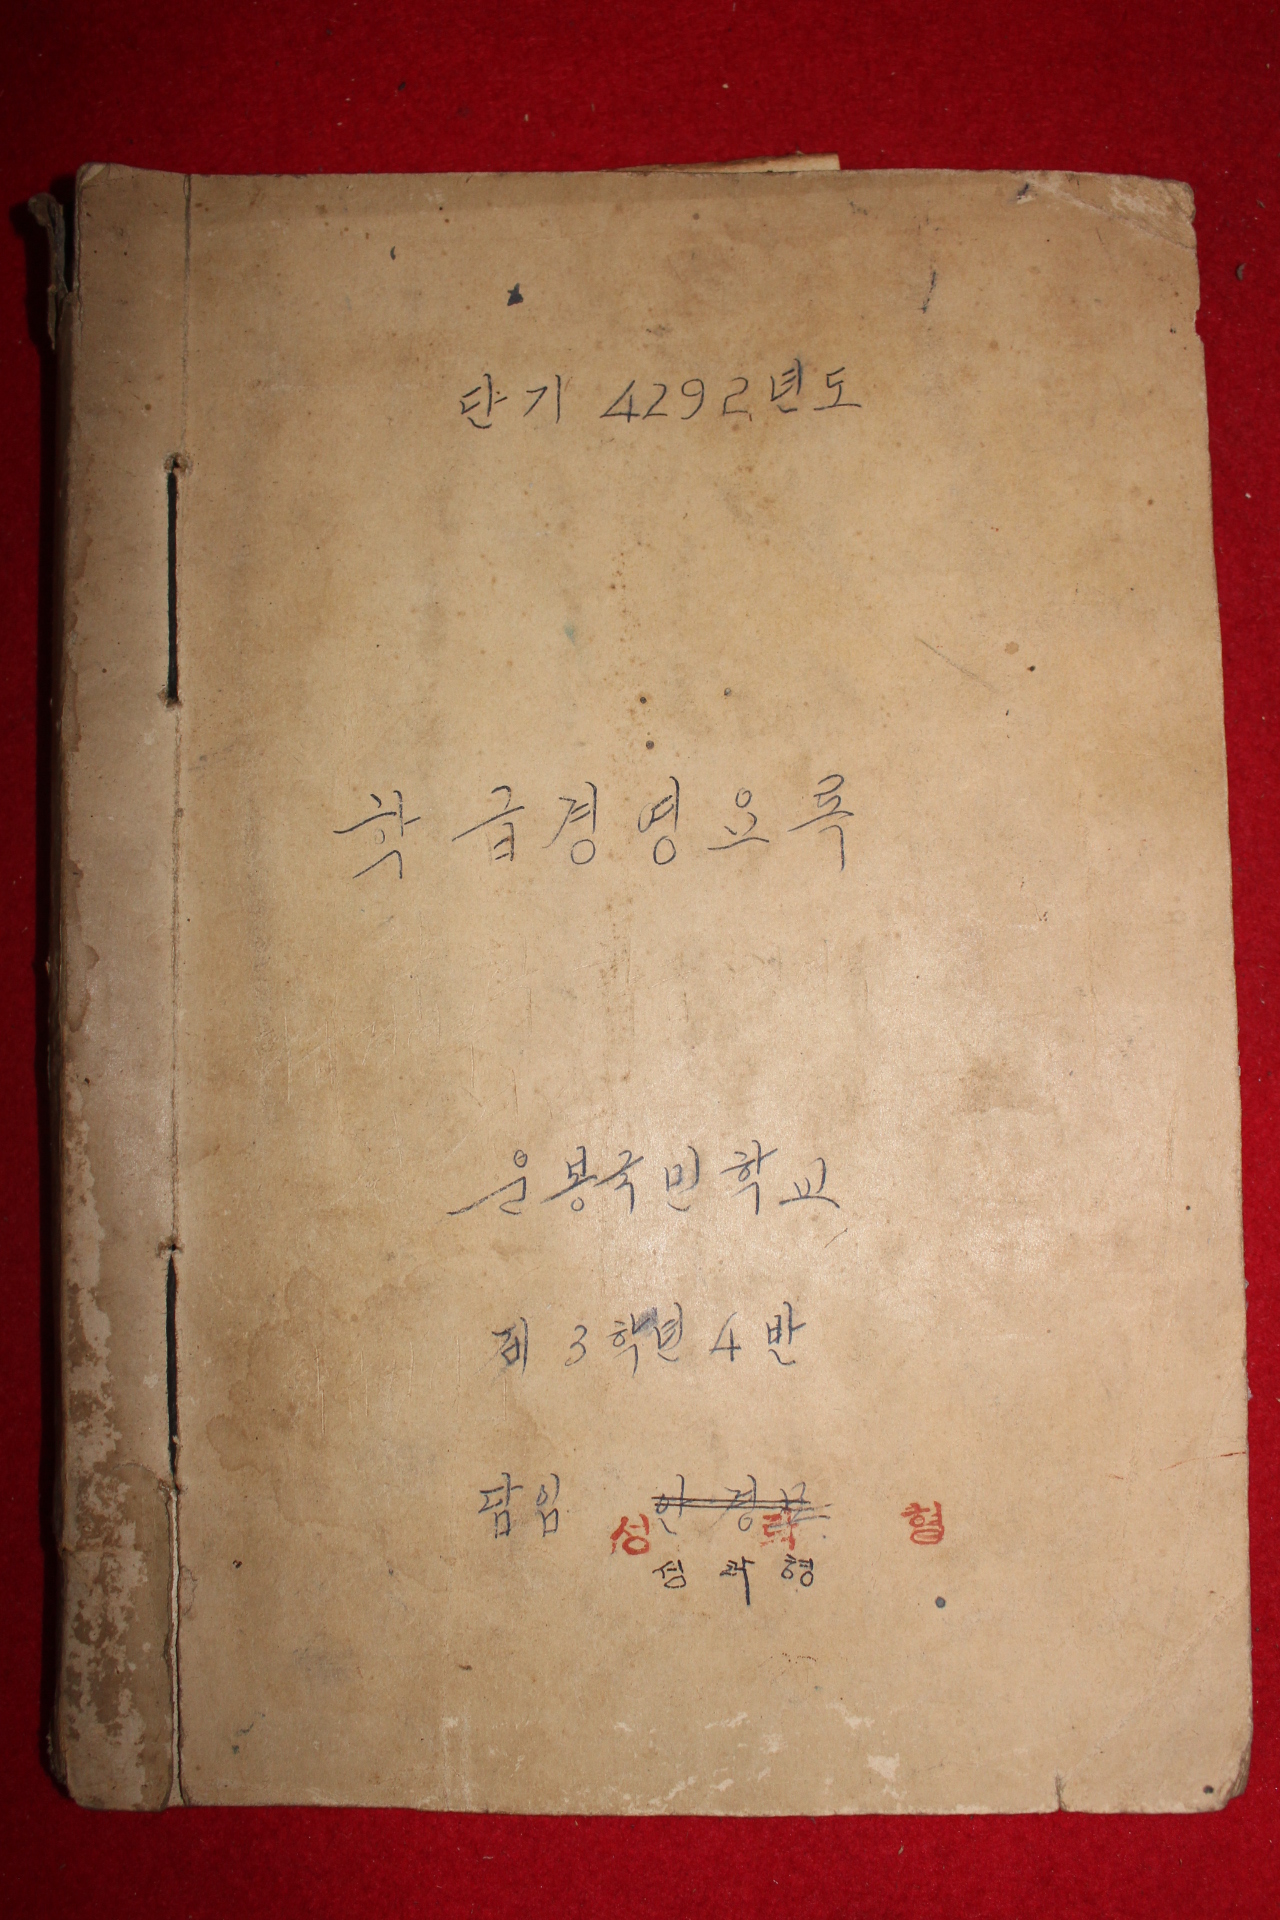 단기 4292년도
학급경영요록
운봉국민학교
제 3학년 4반
담임 안 경
성 락 형
성 락 형